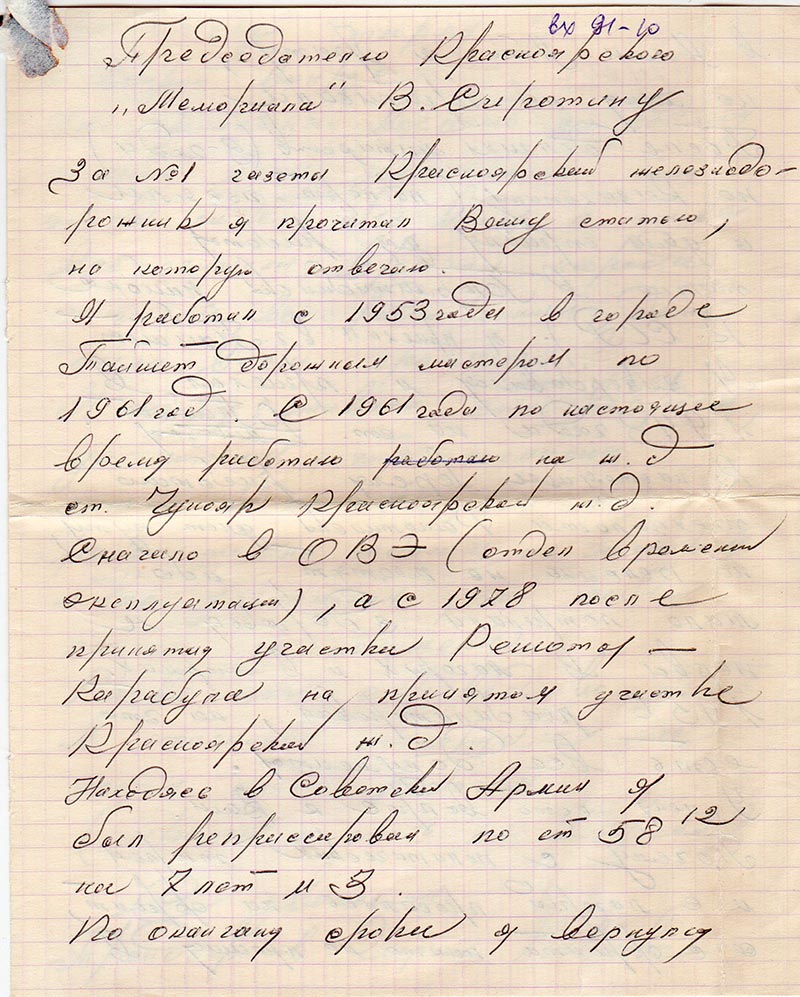 вх 91-10
Председателю Красноярского
„Мемориала" В. Сиротину
За №1 газета Красноярский железнодо-
рожник я прочитал Вашу статью,
на которую отвечаю.
Я работал с 1953 года в городе
Тайшет дорожным мастером по
1961 год. С 1961 года по настоящее
время работаю работаю на ж.д
ст. Чунояр Красноярской ж.д.
Сначало в ОВЭ (отдел времени
эксплуатации), а с 1978 после
принятия участка Решоты —
Карабула на принятом участке
Красноярской ж.д.
Находясь в Советской Армии я
был репрессирован по ст 58 12
на 7 лет и 3.
По окончания срока я вернулся